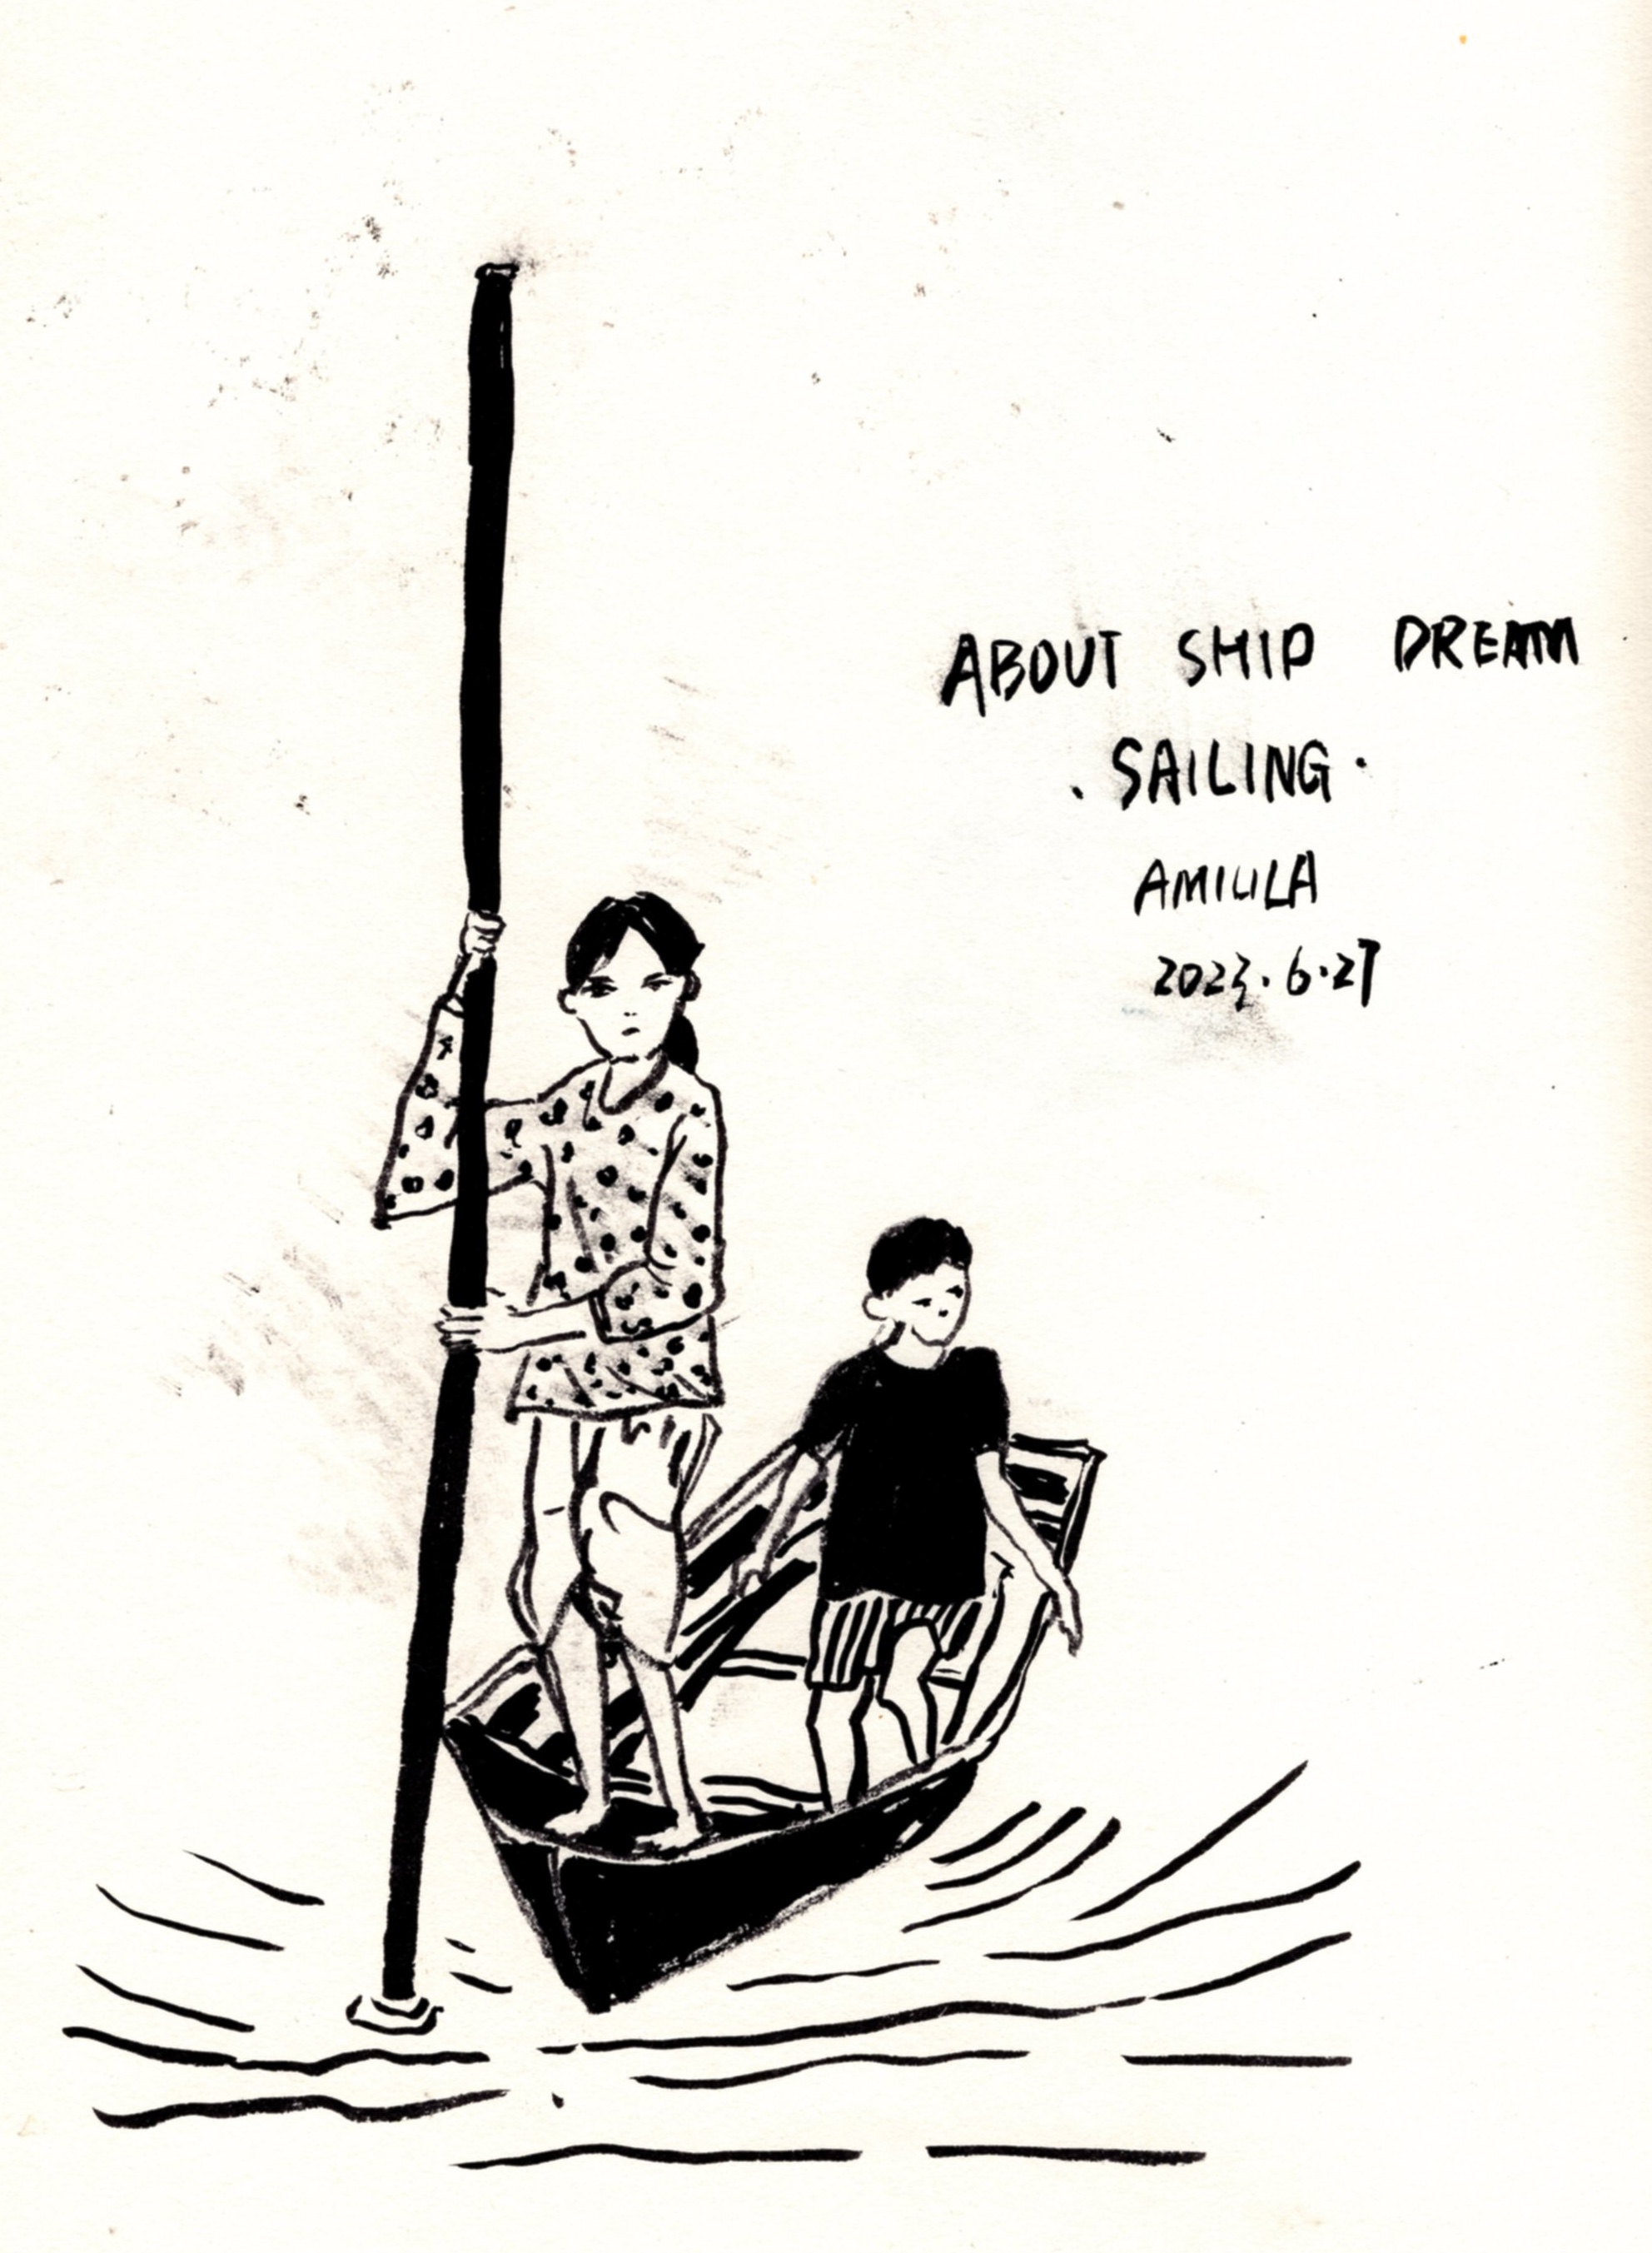 ABOUT SHIP DREAM
·SAILING·
AMIULA
2023.6.27